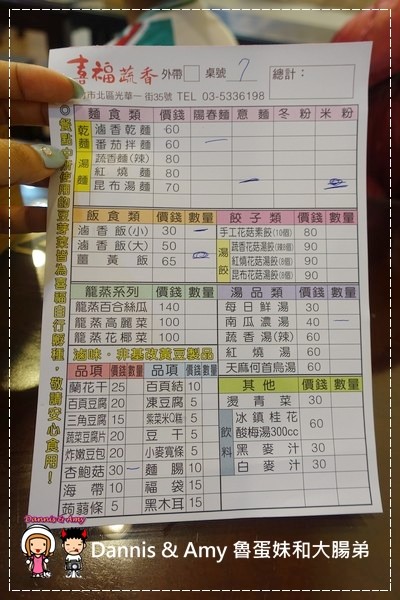 喜福蔬香 外帶 桌號 7 總計：
市北區光華一街35號 TEL 03-5336198
麵食類 價錢 陽春麵 意麵 冬粉 米粉
乾麵
滷香乾麵 60
番茄拌麵 60
湯麵
蔬香麵(辣) 80
紅燒麵 80
昆布湯麵 70
飯食類 價錢 數量
滷香飯(小) 30
滷香飯(大) 50
薑黃飯 65
餃子類 價錢 數量
手工花菇素餃(10個) 80
湯餃
蔬香花菇湯餃(辣8個) 90
紅燒花菇湯餃(8個) 90
昆布花菇湯餃(8個) 90
龍蒸系列 價錢 數量
龍蒸百合絲瓜 140
龍蒸高麗菜 100
龍蒸花椰菜 100
湯品類 價錢 數量
每日鮮湯 30
南瓜濃湯 40
蔬香湯(辣) 60
紅燒湯 60
天麻何首烏湯 60
滷味。非基改黃豆製品
品項 價錢 數量 品項 價錢 數量
蘭花干 25 百頁結 10
百頁豆腐 20 凍豆腐 5
三角豆腐 15 紫菜米Q糕 5
蔬菜豆腐片 20 豆干 5
炸嫩豆包 20 小麥寬條 5
杏鮑菇 30 麵腸 10
海帶 10 福袋 15
蒟蒻條 5 黑木耳 15
其他 價錢 數量
燙青菜 30
飲料
冰鎮桂花酸梅湯300cc 60
黑麥汁 30
白麥汁 30
Dannis & Amy
Dannis & Amy 魯蛋妹和大腸弟